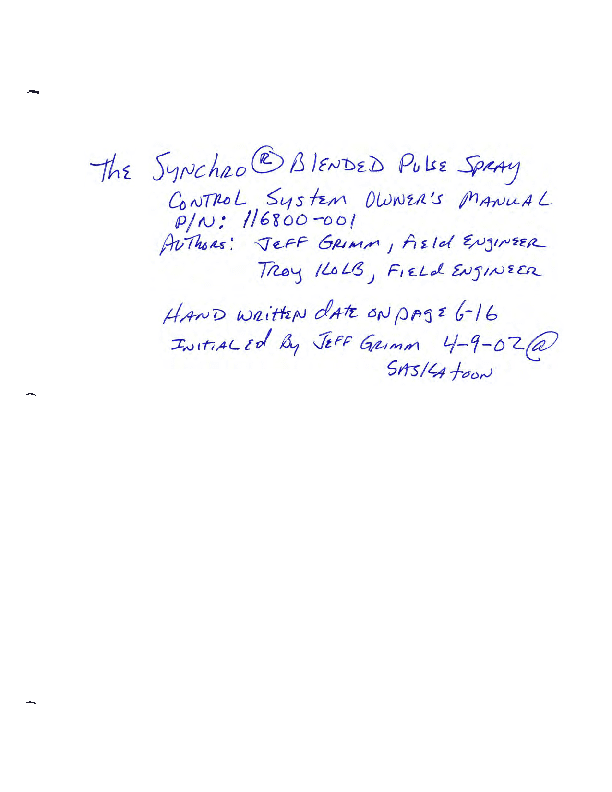 The Synchro® Blended Pulse Spray
Control System Owner's Manual
P/N: 116800-001
Authors: Jeff Grimm, Field Engineer
Troy Kolb, Field Engineer
Hand written date on page 6-16
Initialed By Jeff Grimm 4-9-02 @
Saskatoon